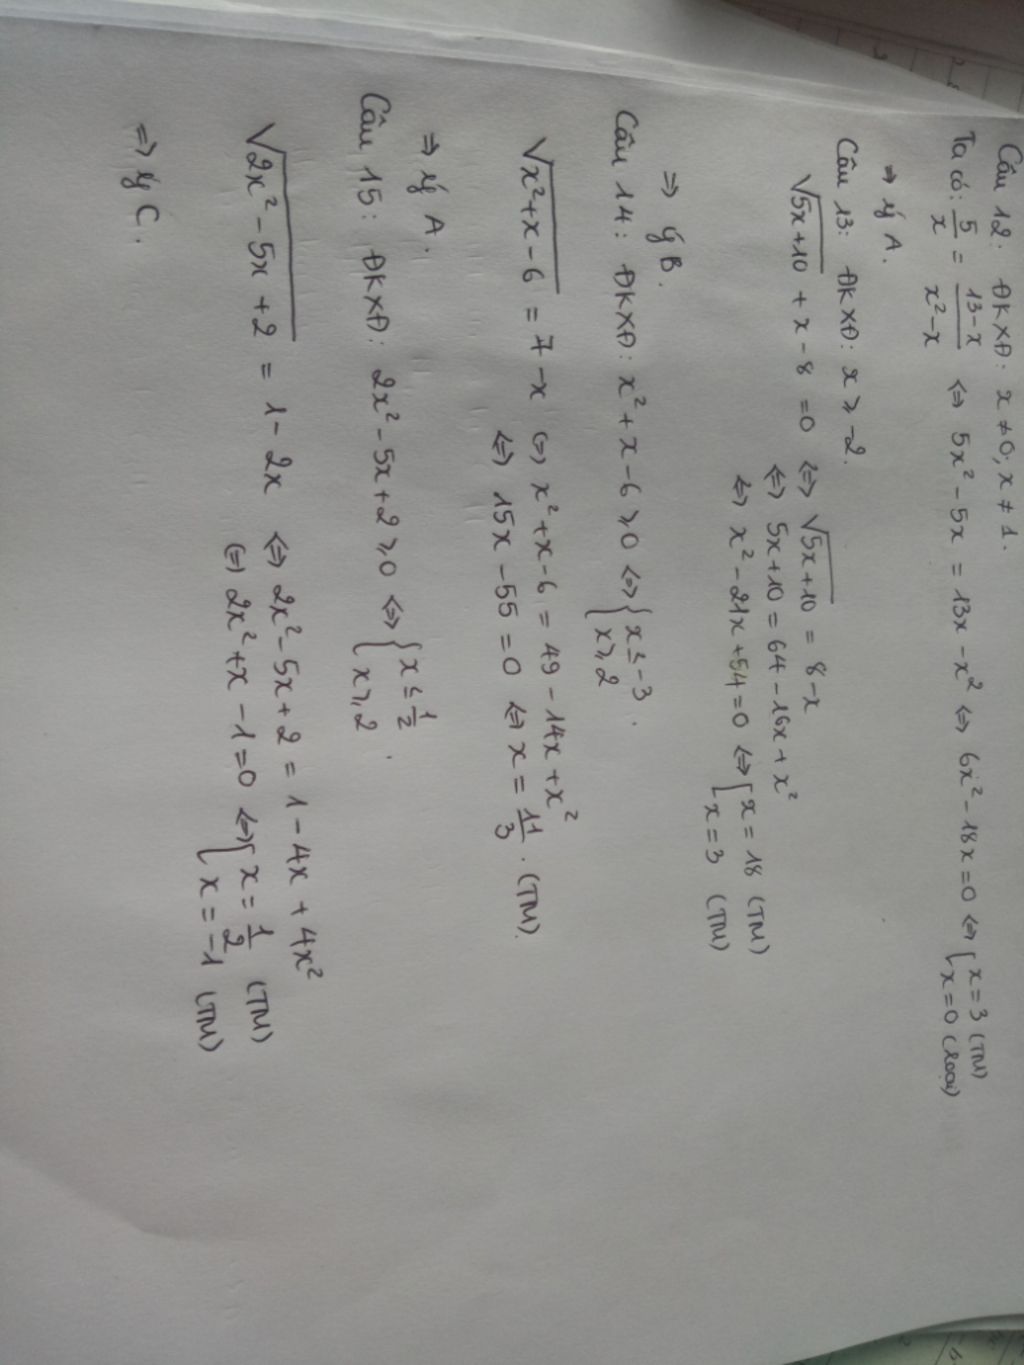 Câu 12: ĐKXĐ: x ≠ 0; x ≠ 1.
Ta có: 5/x = (13-x)/(x²-x) ⇔ 5x² - 5x = 13x - x² ⇔ 6x² - 18x = 0 ⇔ [x = 3 (TM)
x = 0 (loại)
⇒ ý A.
Câu 13: ĐKXĐ: x ≥ -2.
√(5x+10) + x - 8 = 0 ⇔ √(5x+10) = 8 - x
⇔ 5x+10 = 64 - 16x + x²
⇔ x² - 21x + 54 = 0 ⇔ [x = 18 (TM)
x = 3 (TM)
⇒ ý B.
Câu 14: ĐKXĐ: x² + x - 6 ≥ 0 ⇔ {x ≤ -3
x ≥ 2.
√(x²+x-6) = 7 - x ⇔ x²+x-6 = 49 - 14x + x²
⇔ 15x - 55 = 0 ⇔ x = 11/3. (TM).
⇒ ý A.
Câu 15: ĐKXĐ: 2x² - 5x + 2 ≥ 0 ⇔ {x ≤ 1/2
x ≥ 2.
√(2x² - 5x + 2) = 1 - 2x ⇔ 2x² - 5x + 2 = 1 - 4x + 4x²
⇔ 2x² + x - 1 = 0 ⇔ [x = 1/2 (TM)
x = -1 (TM)
⇒ ý C.